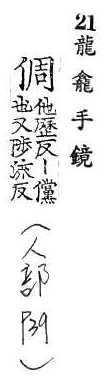 21 龍龕手鏡
倜
他歷反丨儻
也又陟流反
(人部 P39)